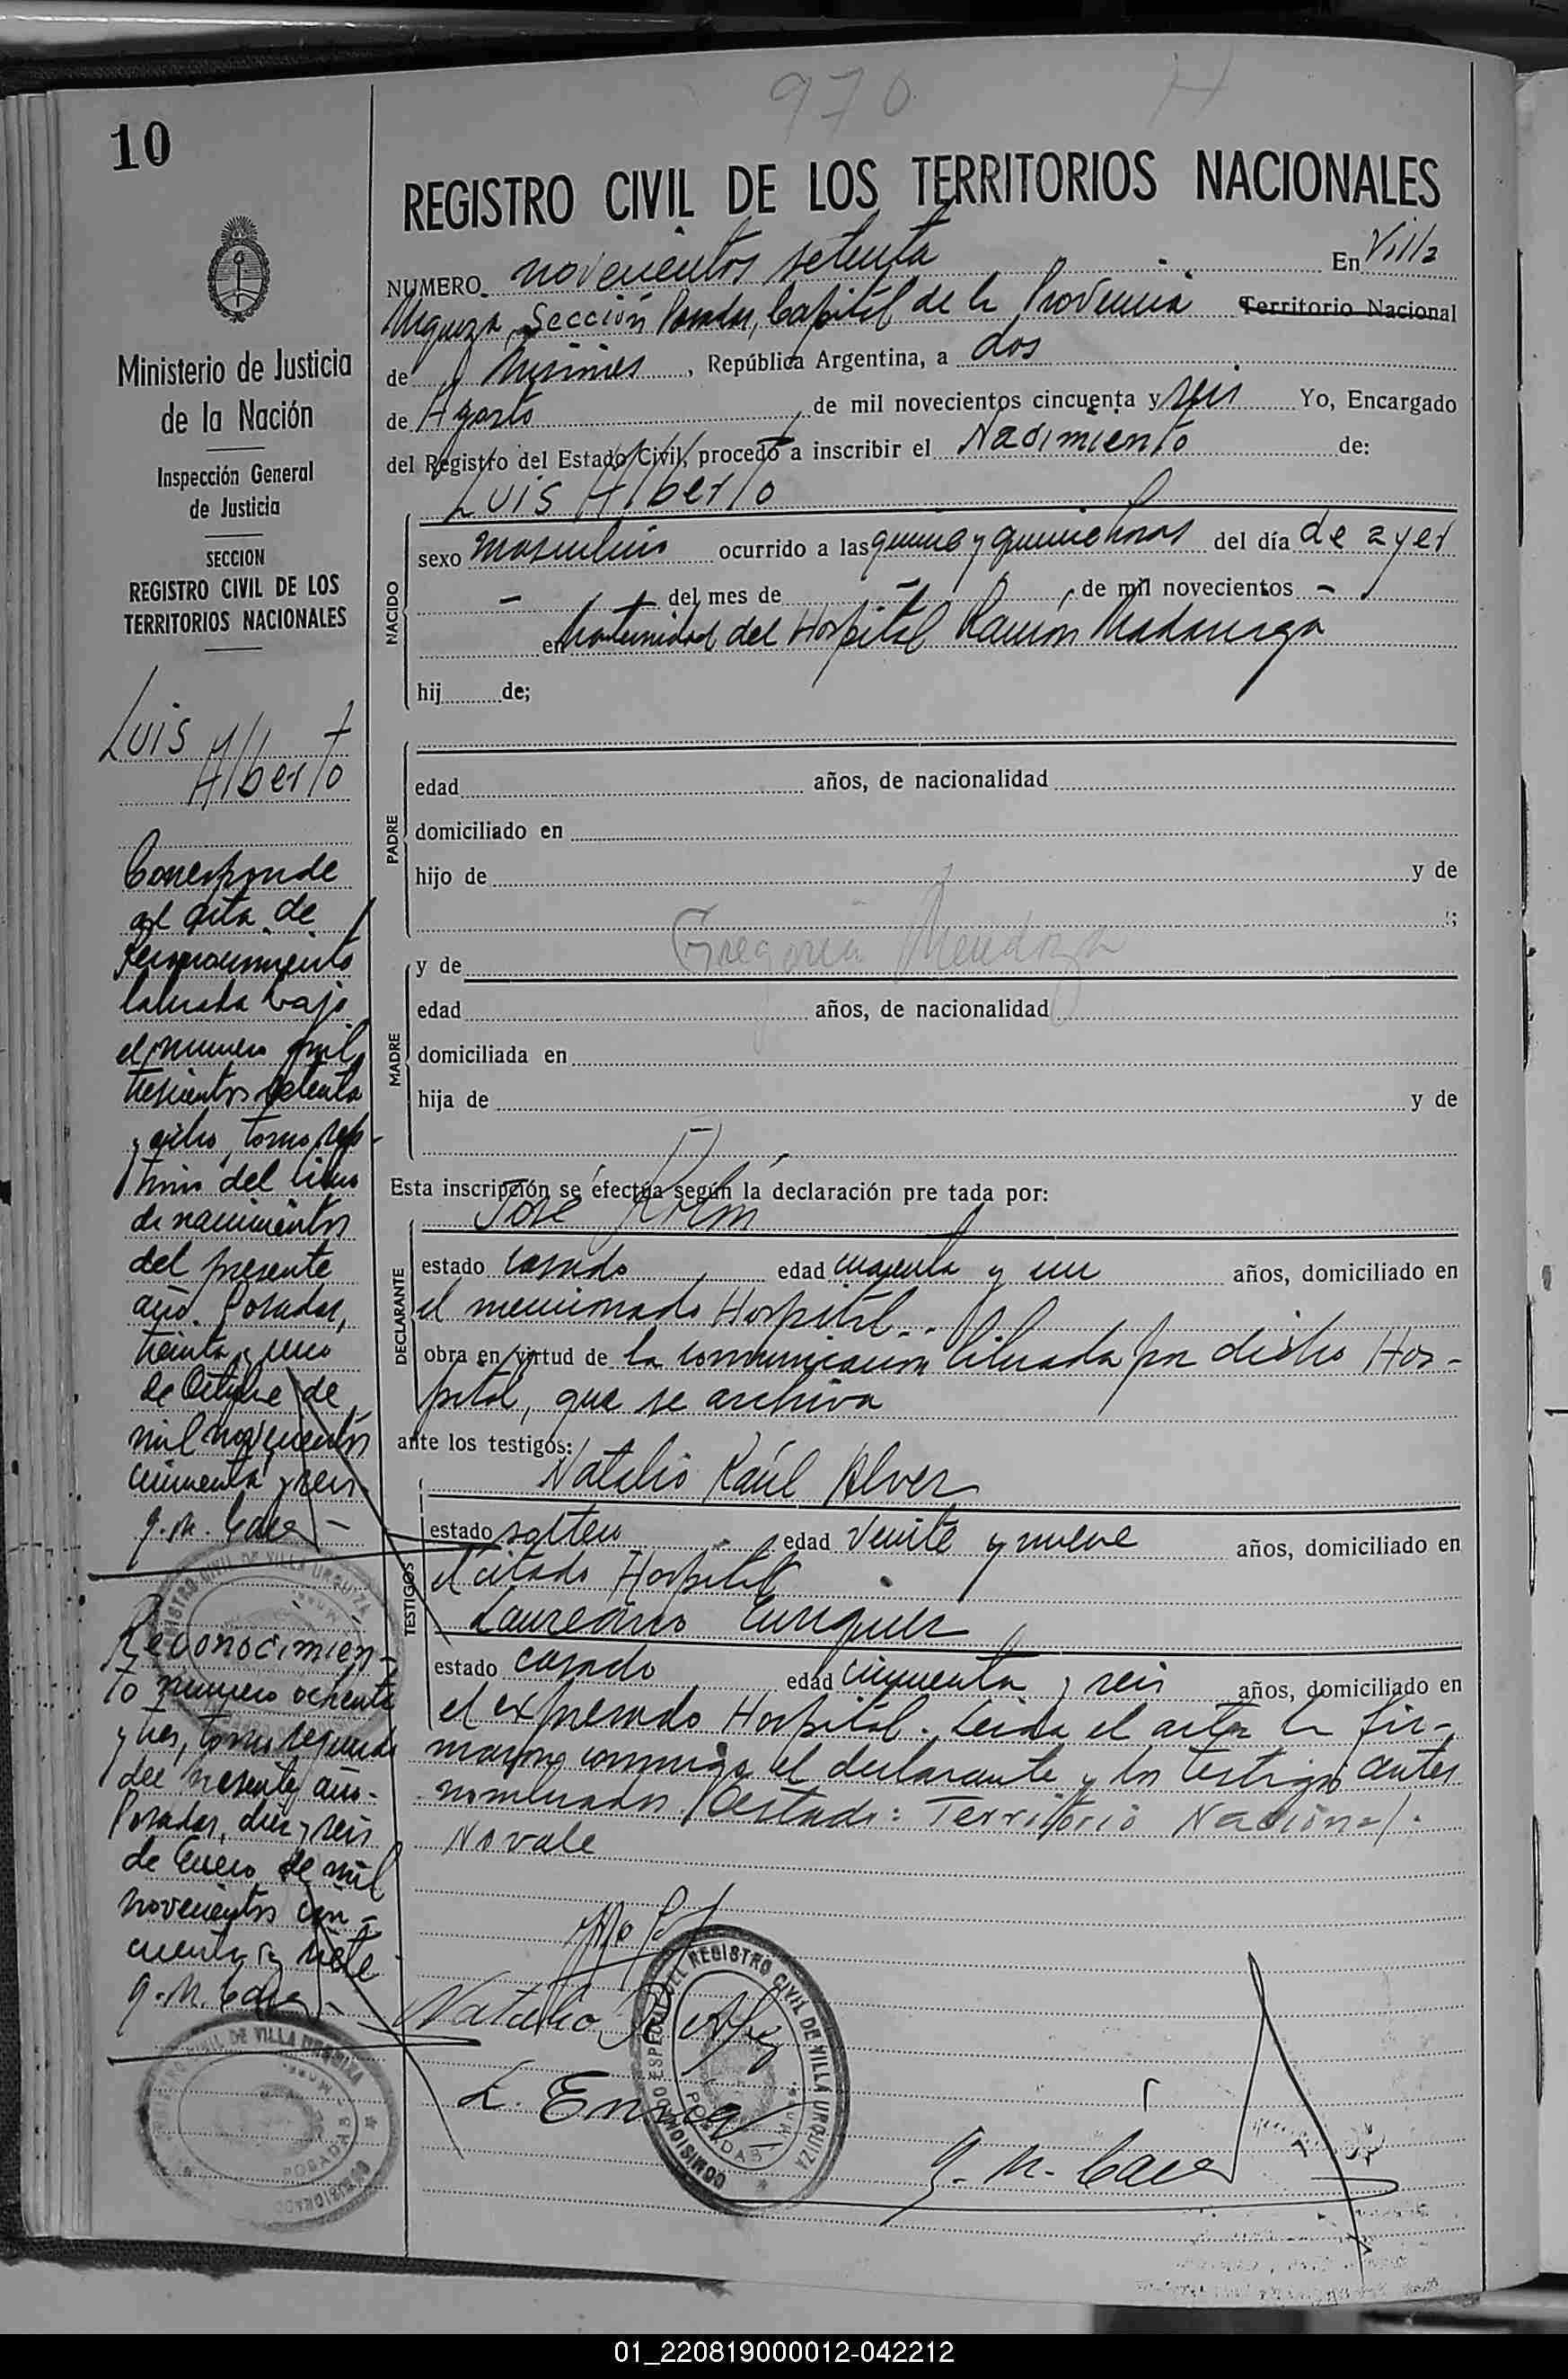 970 H
10
REGISTRO CIVIL DE LOS TERRITORIOS NACIONALES
Ministerio de Justicia
de la Nación
Inspección General
de Justicia
SECCION
REGISTRO CIVIL DE LOS
TERRITORIOS NACIONALES
Luis
Alberto
Corresponde
al acta de
reconocimiento
labrada bajo
el numero mil
trescientos setenta
y ocho, tomo sep-
timo del libro
de nacimientos
del presente
año. Posadas,
treinta y uno
de Octubre de
mil novecientos
cincuenta y seis.
Reconocimien-
to número ochenta
y tres, tomo segundo
del presente año.
Posadas, diez y seis
de Enero de mil
novecientos cin-
cuenta y siete
NUMERO novecientos setenta En Villa
Urquiza, Sección Posadas, Capital de la Provincia Territorio Nacional
de Misiones, República Argentina, a dos
de Agosto de mil novecientos cincuenta y seis Yo, Encargado
del Registro del Estado Civil, procedo a inscribir el Nacimiento de:
Luis Alberto
NACIDO
sexo masculino ocurrido a las quince y quince horas del día de ayer
- del mes de - de mil novecientos -
en Maternidad del Hospital Ramón Madariaga
hij de;
PADRE
edad años, de nacionalidad
domiciliado en
hijo de y de
;
Gregoria Mendoza
MADRE
y de
edad años, de nacionalidad
domiciliada en
hija de y de
Esta inscripción se efectua según la declaración pre tada por:
DECLARANTE
José
estado casado edad cuarenta y un años, domiciliado en
el mencionado Hospital.
obra en virtud de la comunicacion librada por dicho Hos-
pital, que se archiva
ante los testigos:
TESTIGOS
Natalio Raúl Alvez
estado soltero edad veinte y nueve años, domiciliado en
el citado Hospital
Laureano Enriquez
estado casado edad cincuenta y seis años, domiciliado en
el expresado Hospital. Leida el acta la fir-
maron conmigo el declarante y los testigos antes
nombrados. Testado: Territorio Nacional.
No vale
Natalio R Alvez
L. Enriquez
REGISTRO CIVIL DE VILLA URQUIZA
COMISIONADO ESPECIAL DEL REGISTRO CIVIL DE VILLA URQUIZA
POSADAS
REGISTRO CIVIL DE VILLA URQUIZA
POSADAS
01_220819000012-042212